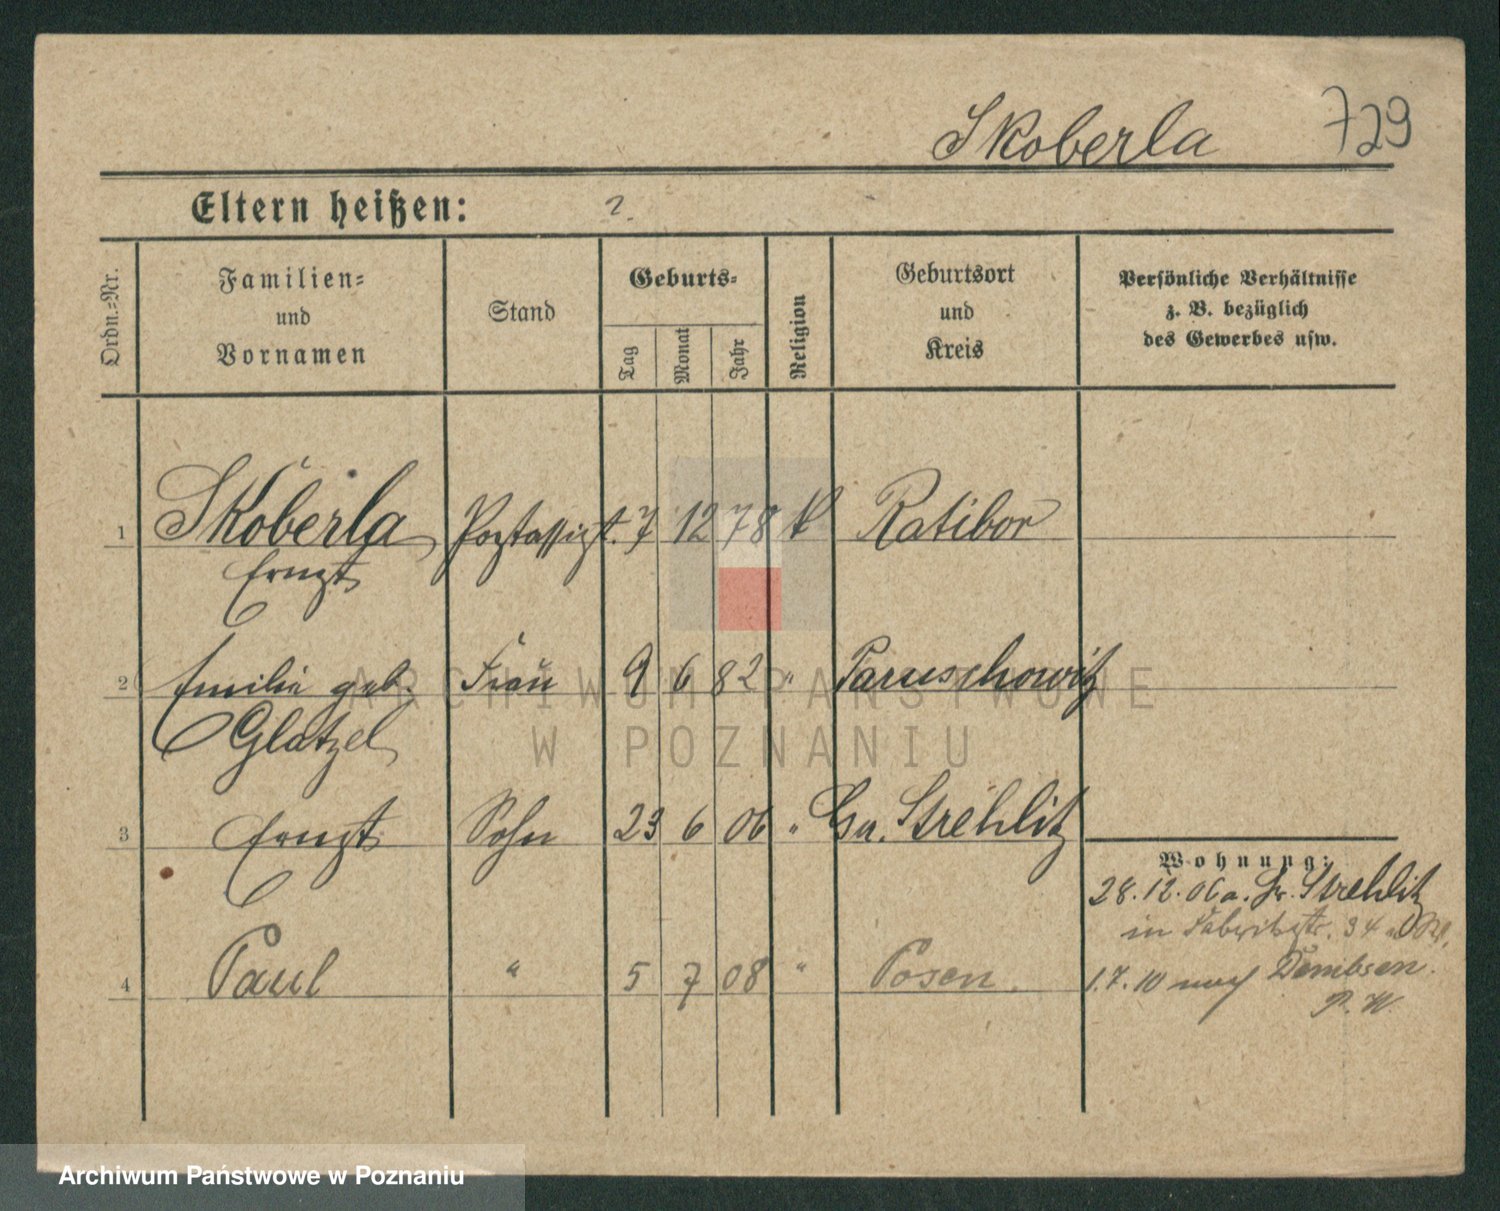 Skoberla 729
Eltern heißen: ?
Ordn.-Nr.
Familien-
und
Vornamen
Stand
Geburts-
Tag
Monat
Jahr
Religion
Geburtsort
und
Kreis
Persönliche Verhältnisse
z. B. bezüglich
des Gewerbes usw.
1 Skoberla Postassist. 7 12 78 k Ratibor
Ernst
2 Emilie geb. Frau 9 6 82 " Paruschowitz
Glatzel
3 Ernst Sohn 23 6 06 " Gr. Strehlitz
Wohnung:
28.12.06 a. Gr. Strehlitz
in 34
4 Paul " 5 7 08 " Posen
1.7.10 nach Dembsen
P. W.
ARCHIWUM PAŃSTWOWE
W POZNANIU
Archiwum Państwowe w Poznaniu